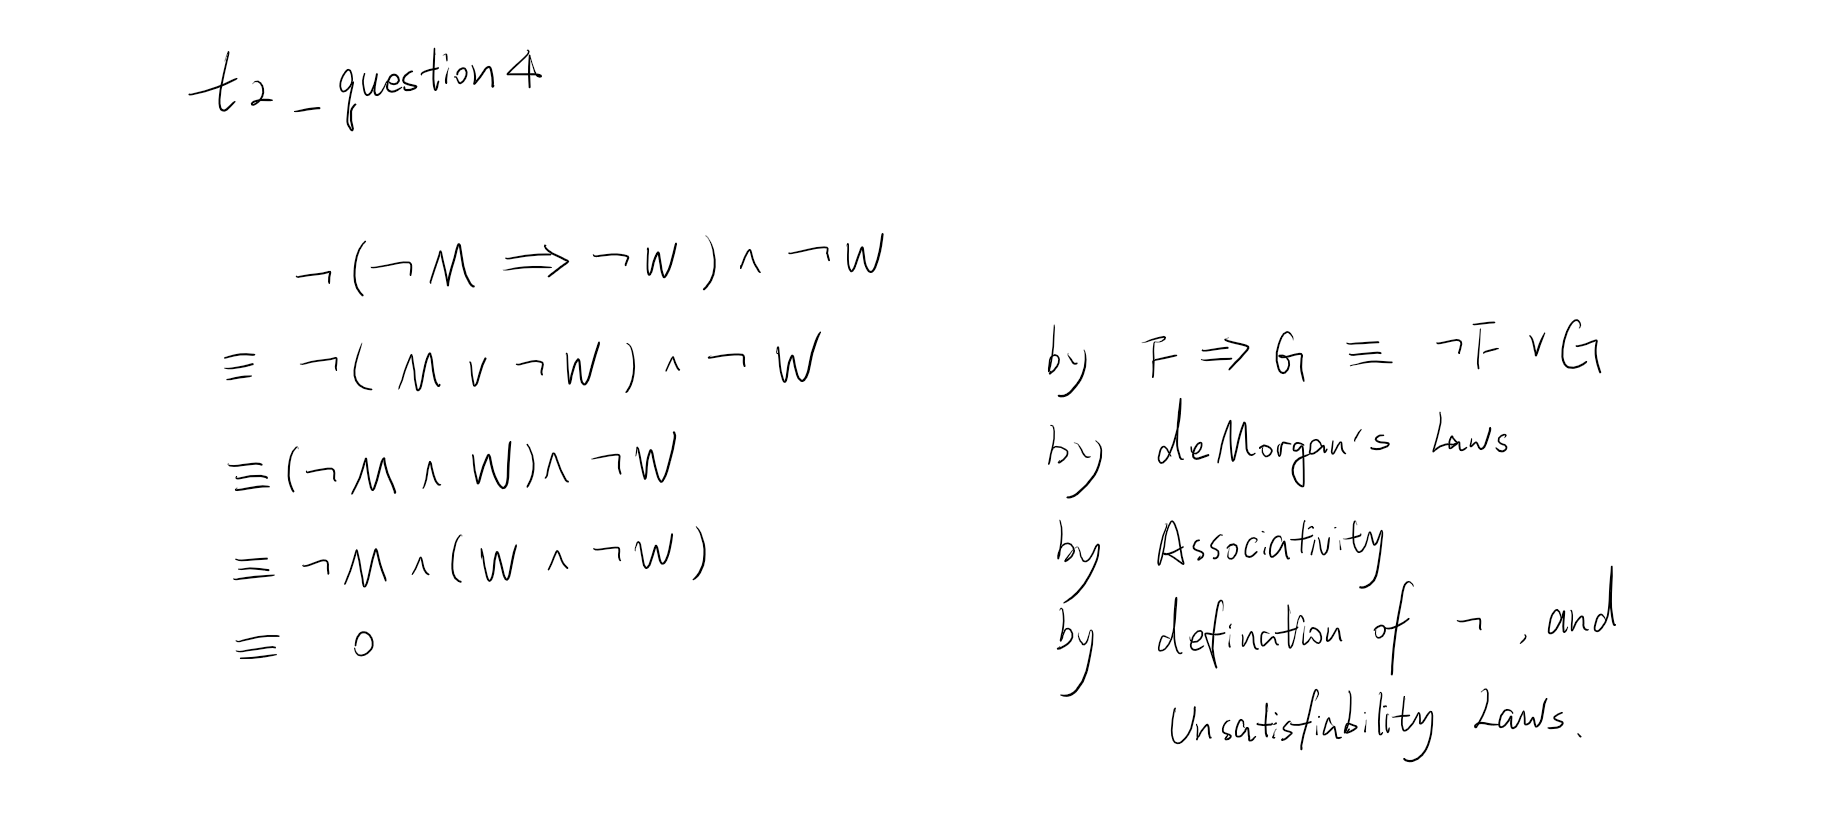 t2_question4
¬(¬M ⇒ ¬W) ∧ ¬W
≡ ¬(M ∨ ¬W) ∧ ¬W by F ⇒ G ≡ ¬F ∨ G
≡ (¬M ∧ W) ∧ ¬W by deMorgan's Laws
≡ ¬M ∧ (W ∧ ¬W) by Associativity
≡ 0 by defination of ¬, and
Unsatisfiability Laws.